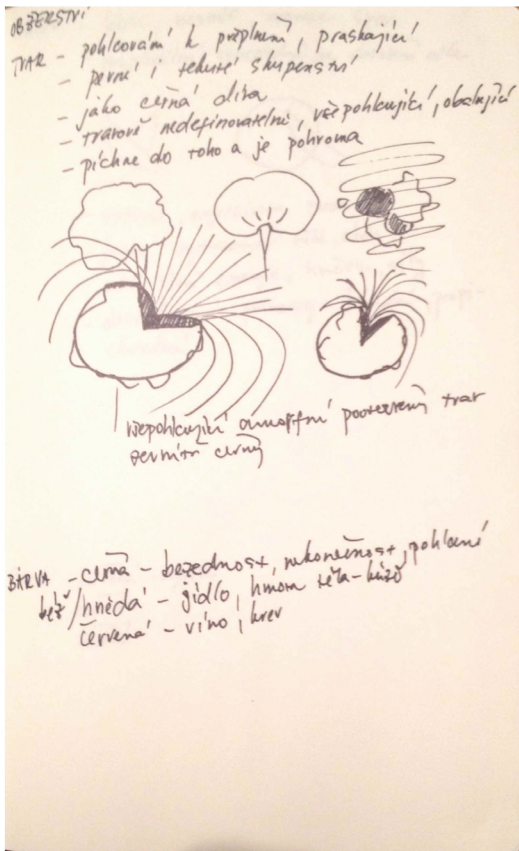 OBŽERSTVÍ
TVAR - pohlcování k přeplnění, praskající
- pevné i tekuté skupenství
- jako černá díra
- tvarově nedefinovatelné, všepohlcující, obalující
- píchne do toho a je pohroma
všepohlcující amorfní tvar
zevnitř černý
BARVA - černá - bezednost, nekonečnost, pohlcení
béž/hnědá - jídlo, hmota těla - kůže
červená - víno, krev